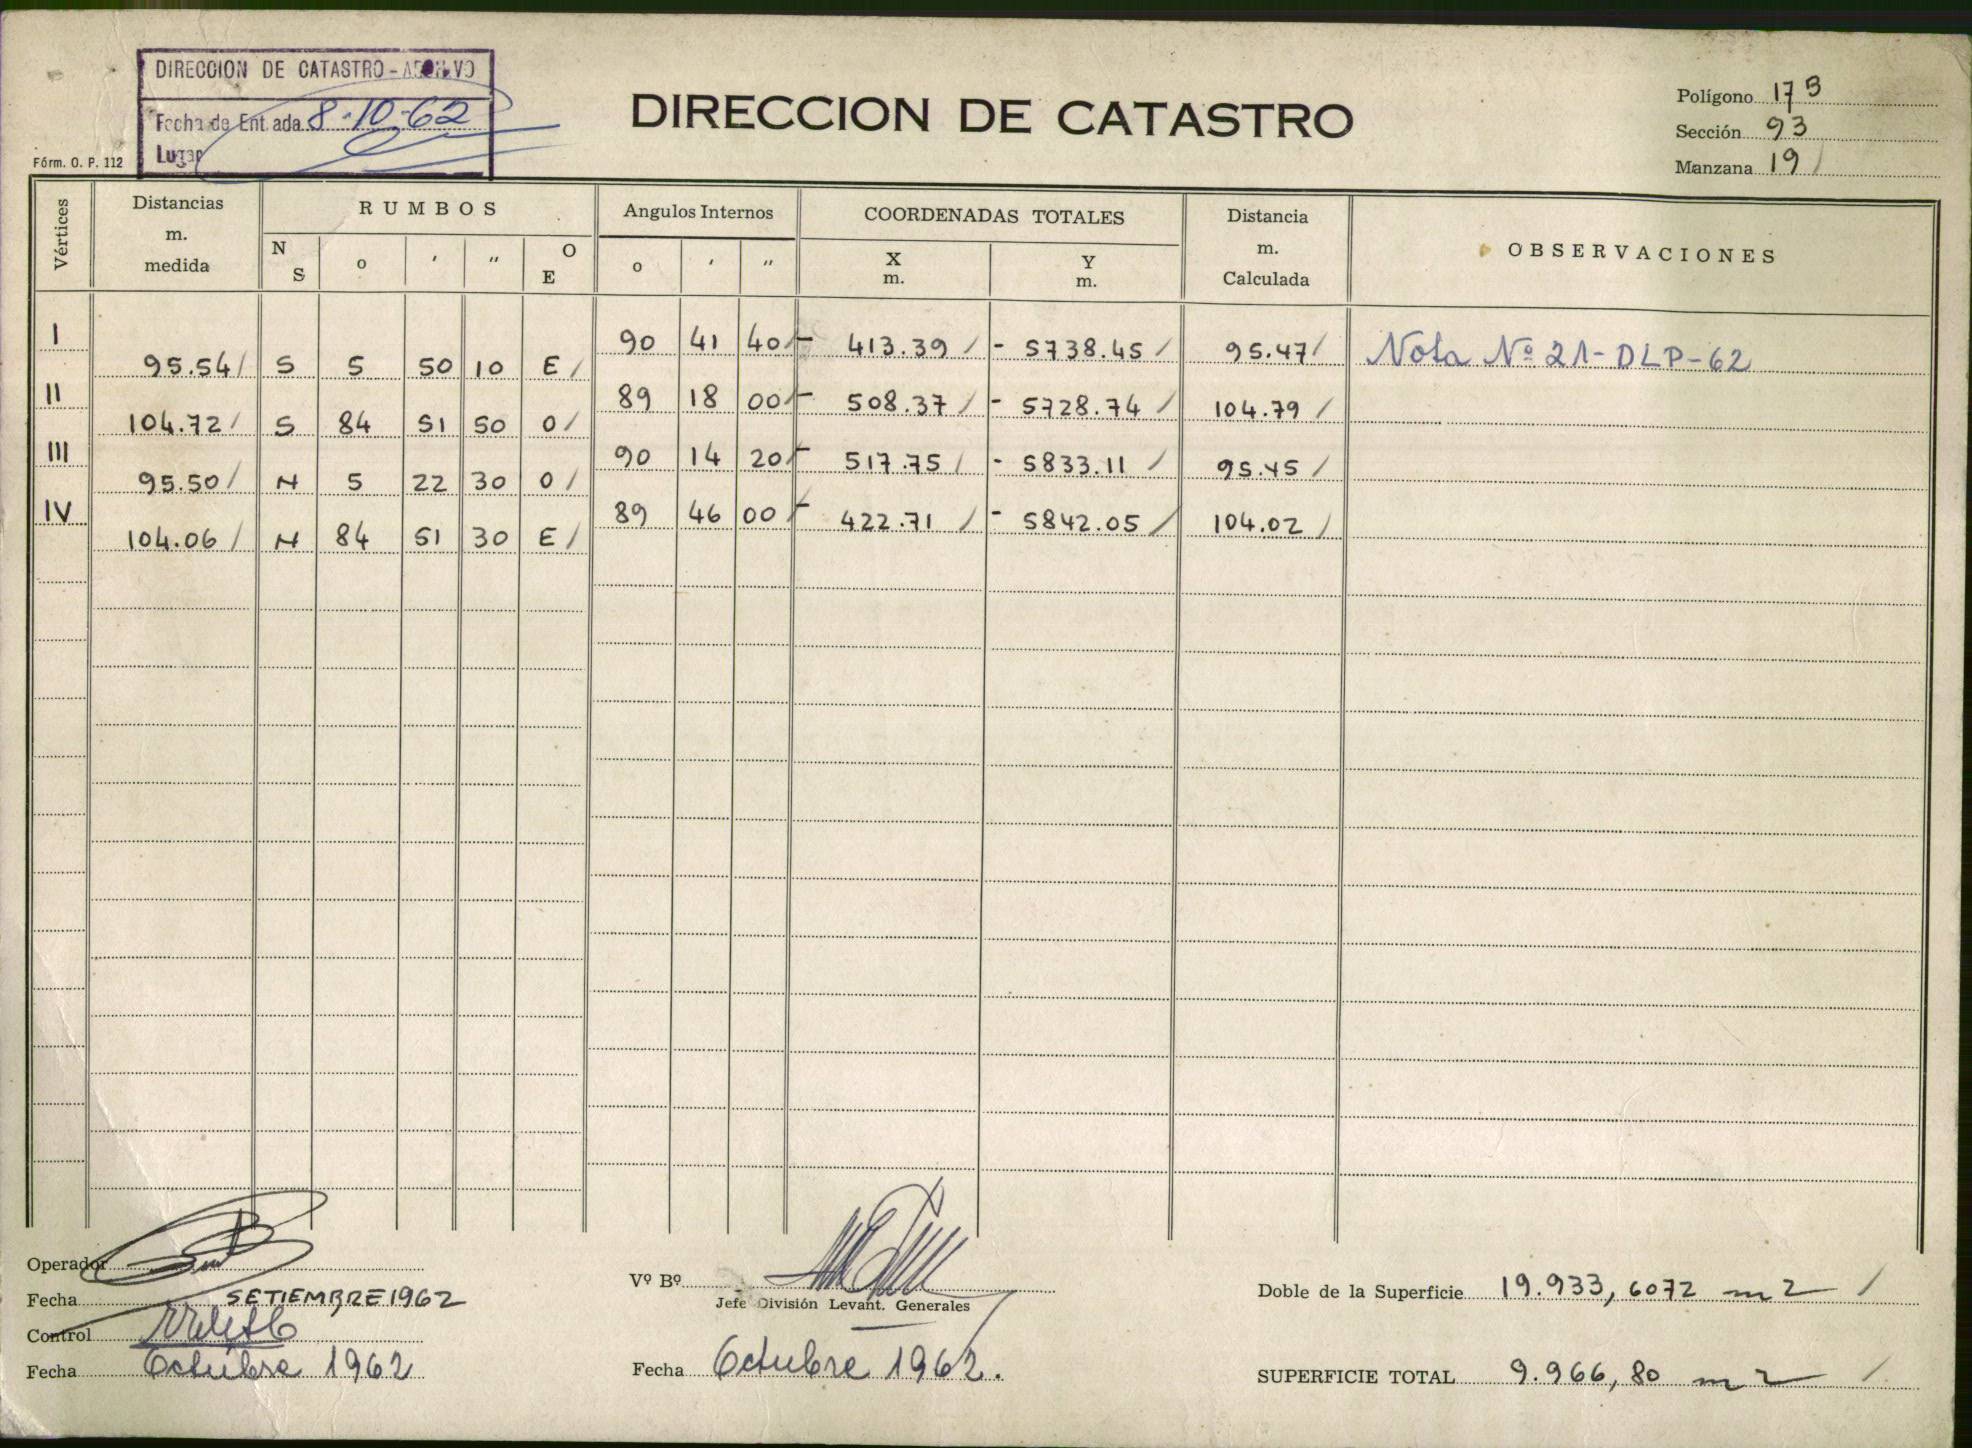 DIRECCION DE CATASTRO - ARCHIVO
Fecha de Entrada 8-10-62
Lugar
Fórm. O. P. 112
DIRECCION DE CATASTRO
Polígono 17B
Sección 93
Manzana 19 /
Vértices
Distancias m. medida
RUMBOS
Angulos Internos
COORDENADAS TOTALES
Distancia m. Calculada
OBSERVACIONES
N S o ' " O E
o ' "
X m. Y m.
I 90 41 40 - 413.39 / - 5738.45 / 95.47 / Nota Nº 21-DLP-62
95.54 / S 5 50 10 E /
II 89 18 00 - 508.37 / - 5728.74 / 104.79 /
104.72 / S 84 51 50 O /
III 90 14 20 - 517.75 / - 5833.11 / 95.45 /
95.50 / N 5 22 30 O /
IV 89 46 00 - 422.71 / - 5842.05 / 104.02 /
104.06 / N 84 51 30 E /
Operador
Fecha SETIEMBRE 1962
Control
Fecha Octubre 1962
Vº Bº
Jefe División Levant. Generales
Fecha Octubre 1962.
Doble de la Superficie 19.933,6072 m2 /
SUPERFICIE TOTAL 9.966,80 m2 /